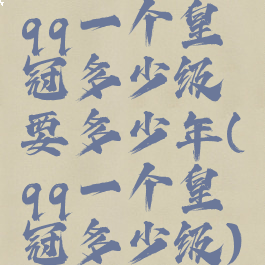 qq一个皇
冠多少级
要多少年(
qq一个皇
冠多少级)